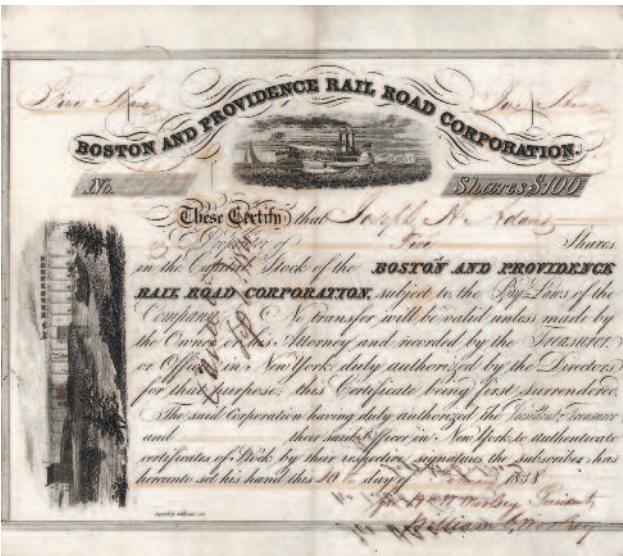 Five Shares Five Shares
BOSTON AND PROVIDENCE RAIL ROAD CORPORATION.
No. Shares $100
These Certify that Joseph H. Adams
is Proprietor of Five Shares
in the Capital Stock of the BOSTON AND PROVIDENCE
RAIL ROAD CORPORATION, subject to the By-Laws of the
Company. No transfer will be valid unless made by
the Owner or his Attorney and recorded by the Treasurer,
or Officer in New York duly authorized by the Directors
for that purpose; this Certificate being first surrendered.
The said Corporation having duly authorized the President, Treasurer
and their said Officer in New York to authenticate
certificates of Stock by their respective signatures the subscriber has
hereunto set his hand this day of 1838
W. W. Woolsey President
William C. Woolsey